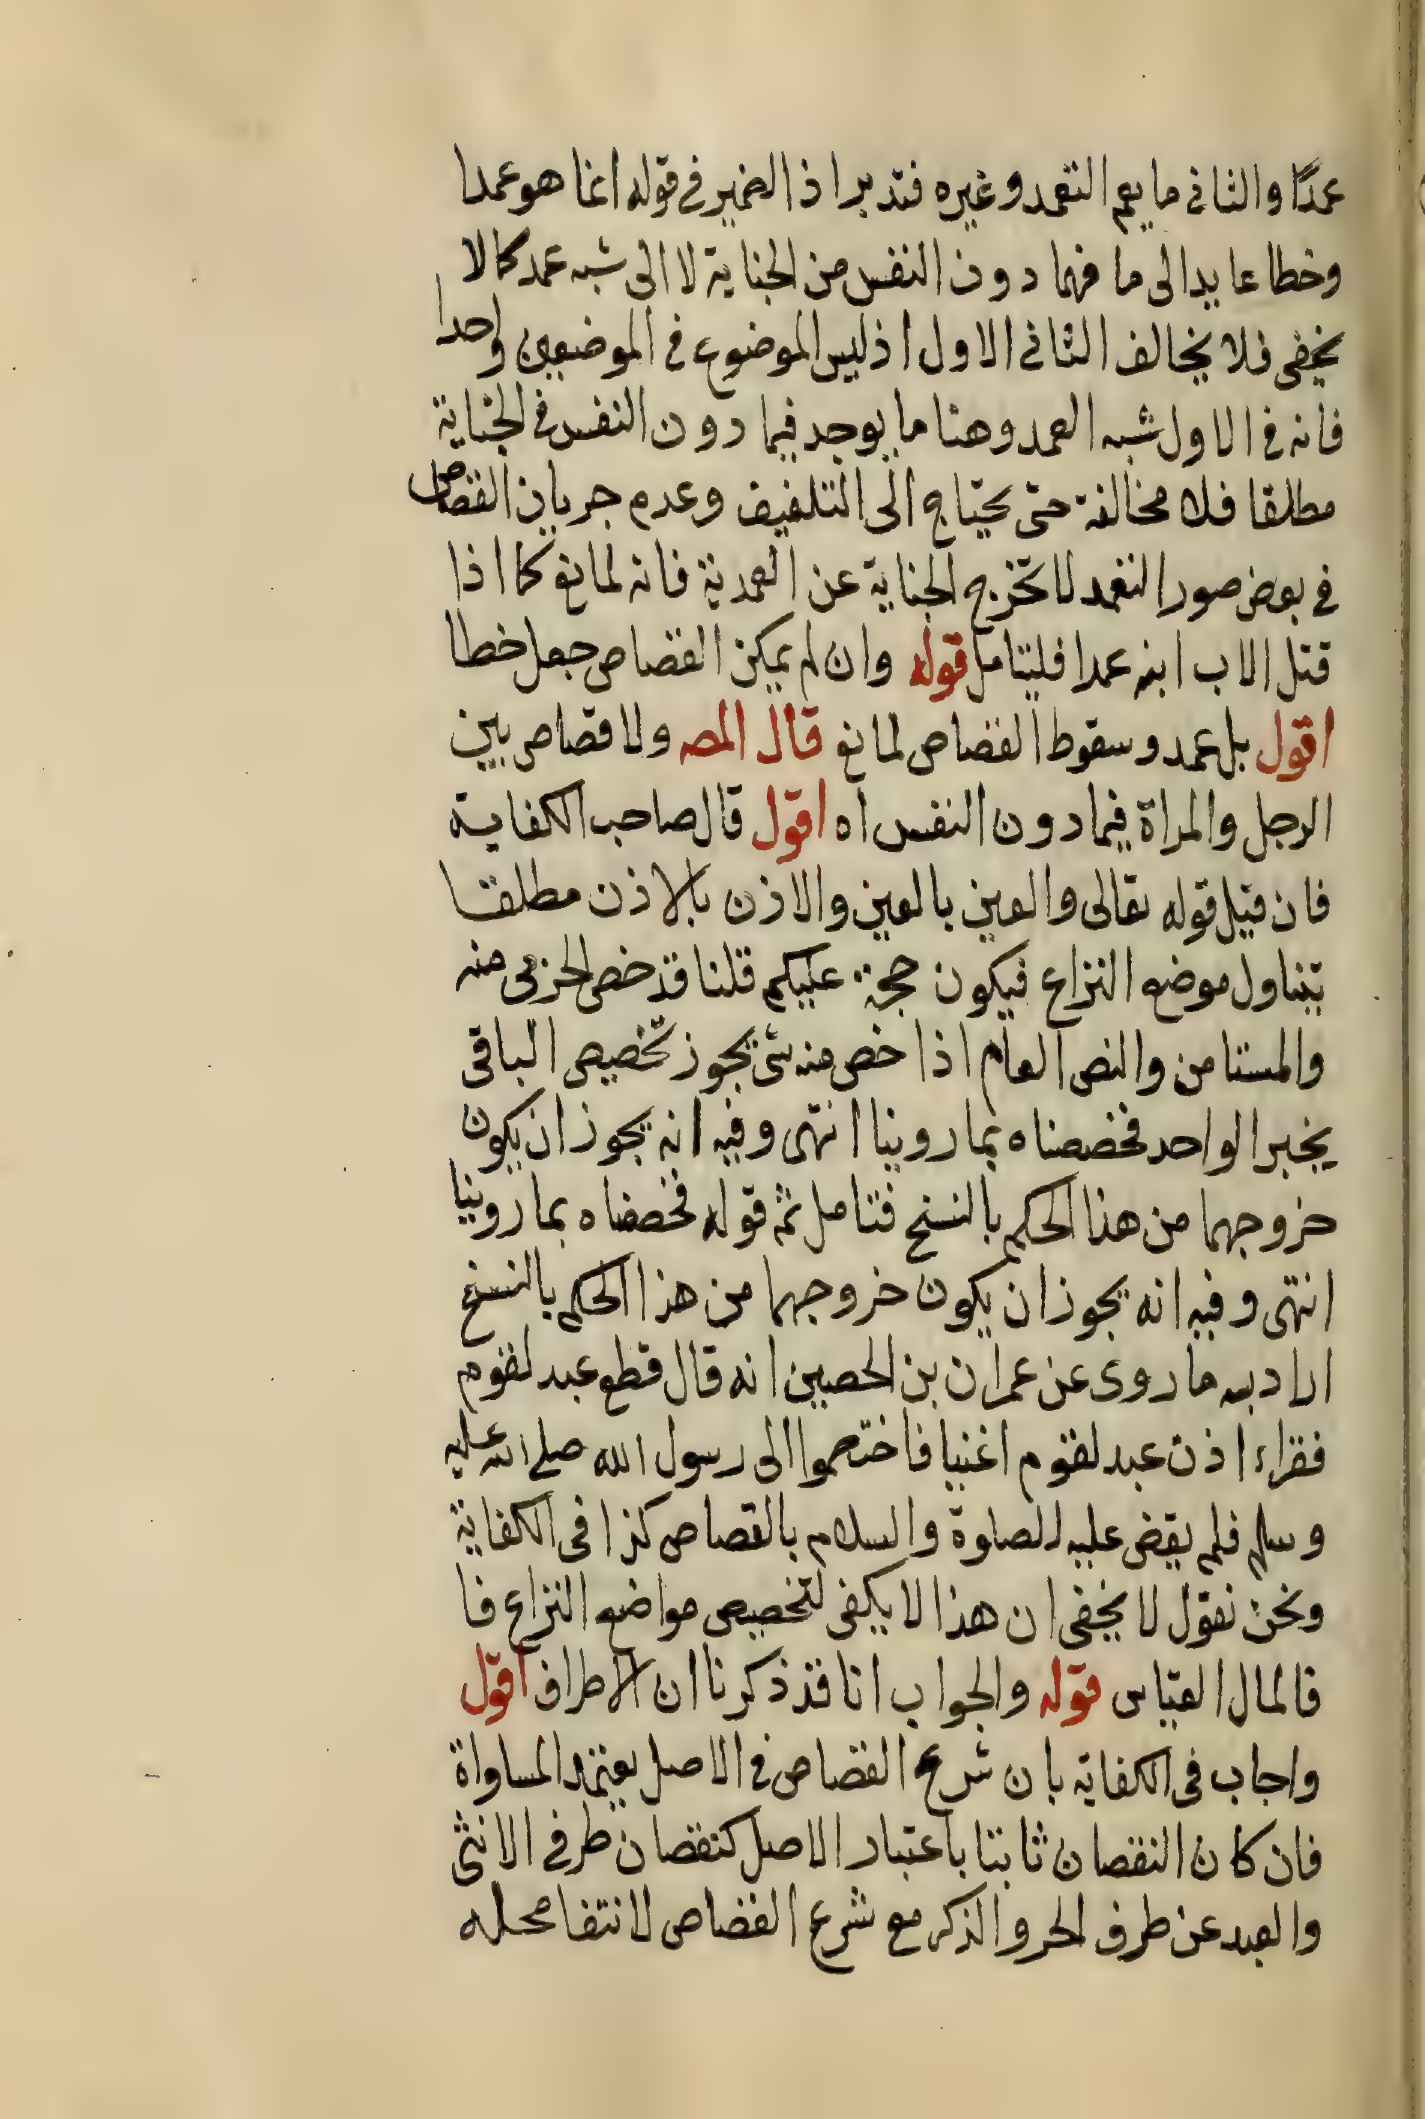 عمدًا والثانى ما يعم التعمد وغيره فتدبر اذ الضمير فى قوله انما هو عمدا
وخطا عايد الى ما فيما دون النفس من الجناية لا الى شبه عمد كما لا
يخفى فلا يخالف الثانى الاول اذ ليس الموضوع فى الموضعين واحدا
فانه فى الاول شبه العمد وهنا ما يوجد فيما دون النفس فى الجناية
مطلقا فلا مخالفة حتى يحتاج الى التلفيف وعدم جريان القصاص
فى بعض صور التعمد لا تخرج الجناية عن العمدية فانه لمانع كما اذا
قتل الاب ابنه عمدا فليتامل قوله وان لم يمكن القصاص جعل خطا
اقول بل عمد وسقوط القصاص لمانع قال المصـ ولا قصاص بين
الرجل والمراة فيما دون النفس اه اقول قال صاحب الكفاية
فان قيل قوله تعالى والعين بالعين والاذن بالاذن مطلقا
يتناول موضع النزاع فيكون حجة عليكم قلنا قد خص الحربى منه
والمستامن والنص العام اذا خص منه شئ يجوز تخصيص الباقى
بخبر الواحد فخصصناه بما روينا انتهى وفيه انه يجوز ان يكون
خروجهما من هذا الحكم بالنسخ فتامل ثم قوله فخصصناه بما روينا
انتهى وفيه انه يجوز ان يكون خروجهما من هذا الحكم بالنسخ
اراد به ما روى عن عمران بن الحصين انه قال قطع عبد لقوم
فقراء اذن عبد لقوم اغنيا فاختصموا الى رسول الله صلى الله عليه
وسلم فلم يقض عليه الصلوة والسلام بالقصاص كذا فى الكفاية
ونحن نقول لا يخفى ان هذا لا يكفى لتخصيص مواضع النزاع فا
فالمال القياس قوله والجواب انا قد ذكرنا ان الاطراف اقول
واجاب فى الكفاية بان شرع القصاص فى الاصل يعتمد المساواة
فان كان النقصان ثابتا باعتبار الاصل كنقصان طرفى الانثى
والعبد عن طرف الحر والذكر مع شرع القصاص لانتفا محله